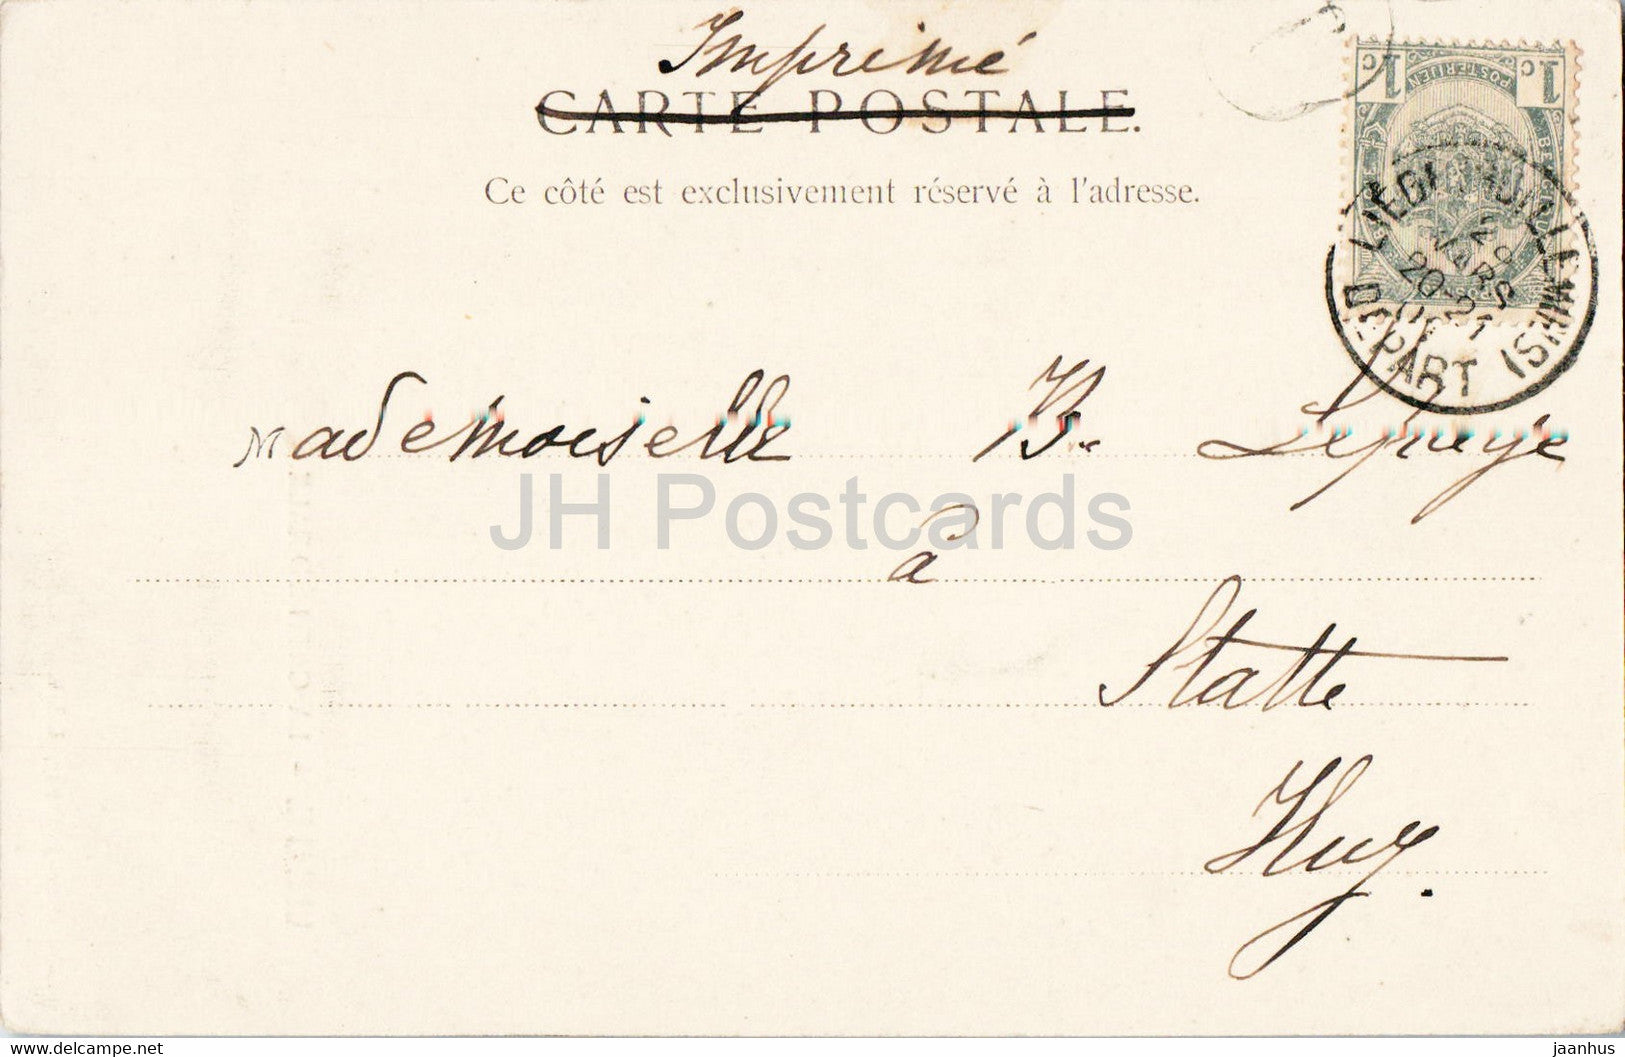 Imprimé
CARTE POSTALE.
Ce côté est exclusivement réservé à l'adresse.
1c 1c
POSTERIJEN
DÉPART
MARS
20-21
Mademoiselle B. Lepreye
à
Statte
Huy.
JH Postcards
www.delcampe.net
jaanhus